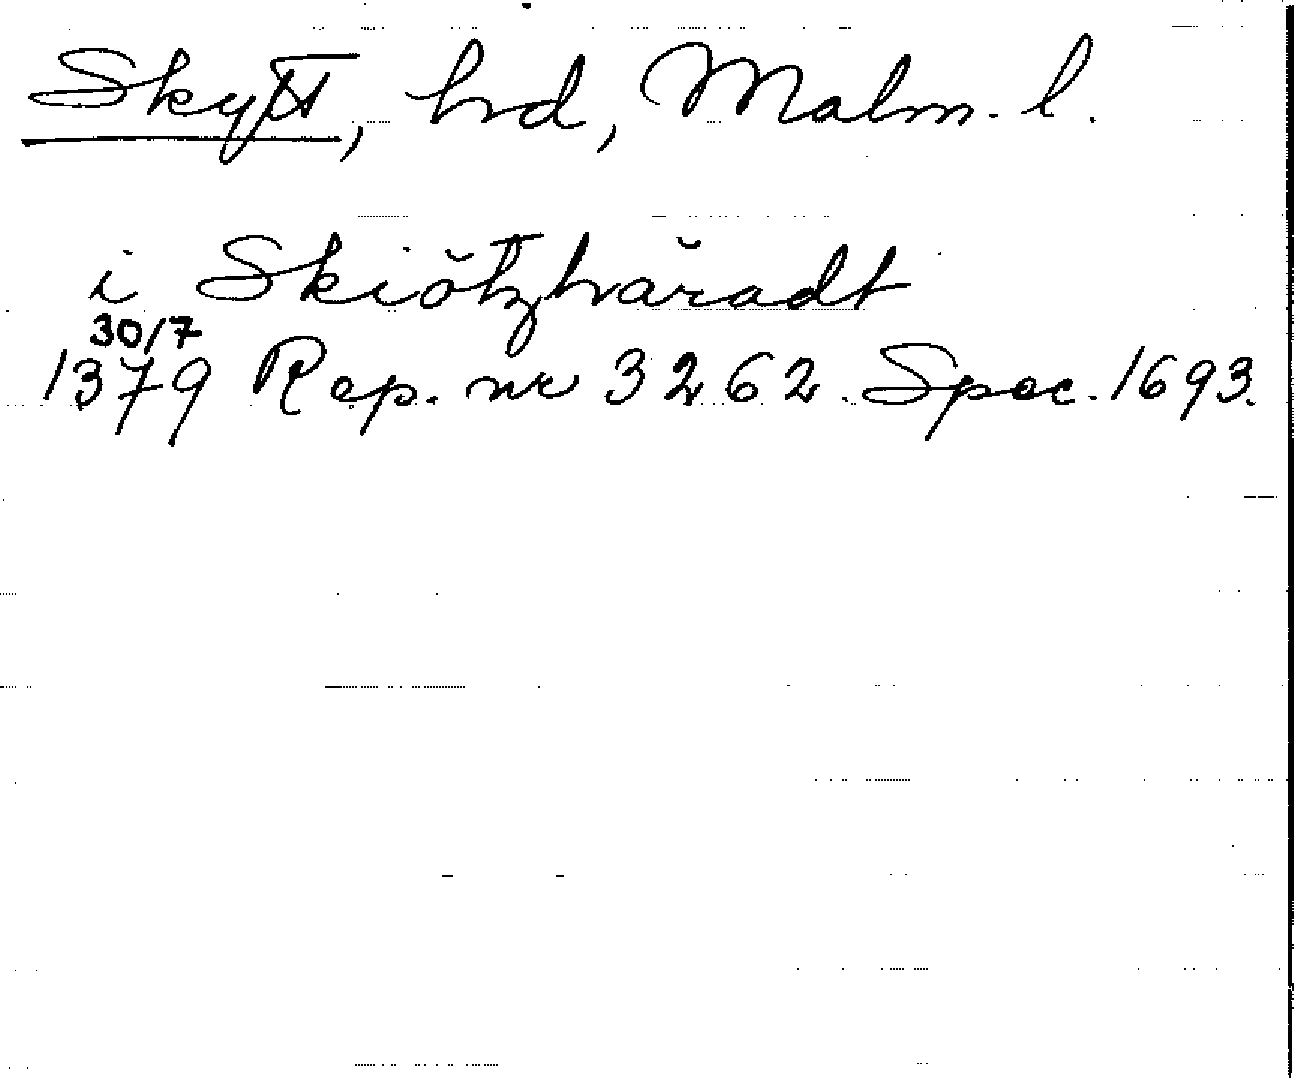 Skytt, hrd, Malm. l.
i Skiötzhäradt
30/7
1379 Rep. nr 3262. Spec. 1693.